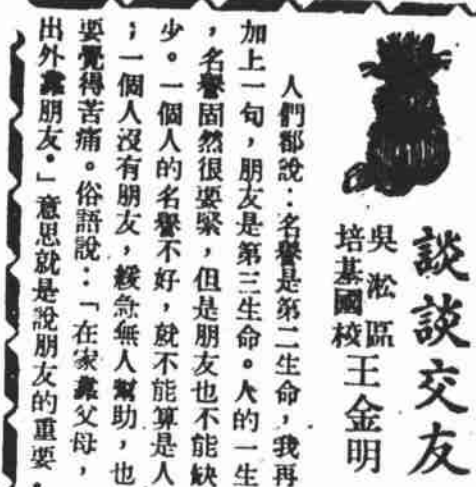 談談交友
吳淞區
培基國校
王金明
人們都說：名譽是第二生命，我再
加上一句，朋友是第三生命。人的一生
，名譽固然很要緊，但是朋友也不能缺
少。一個人的名譽不好，就不能算是人
；一個人沒有朋友，緩急無人幫助，也
要覺得苦痛。俗語說：「在家靠父母，
出外靠朋友。」意思就是說朋友的重要。